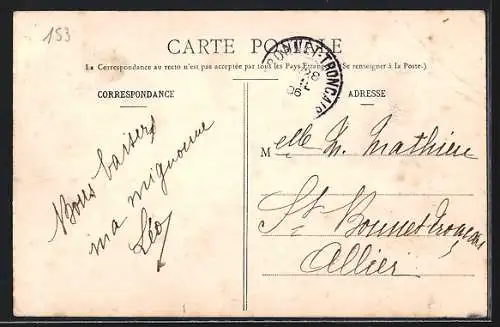 153
CARTE POSTALE
La Correspondance au recto n'est pas acceptée par tous les Pays Etrangers (Se renseigner à la Poste.)
CORRESPONDANCE
ADRESSE
BONNET-TRONÇAIS
28
06
Bons baisers
ma mignonne
Léo
Melle M. Mathieu
St Bonnet-Tronçais
Allier